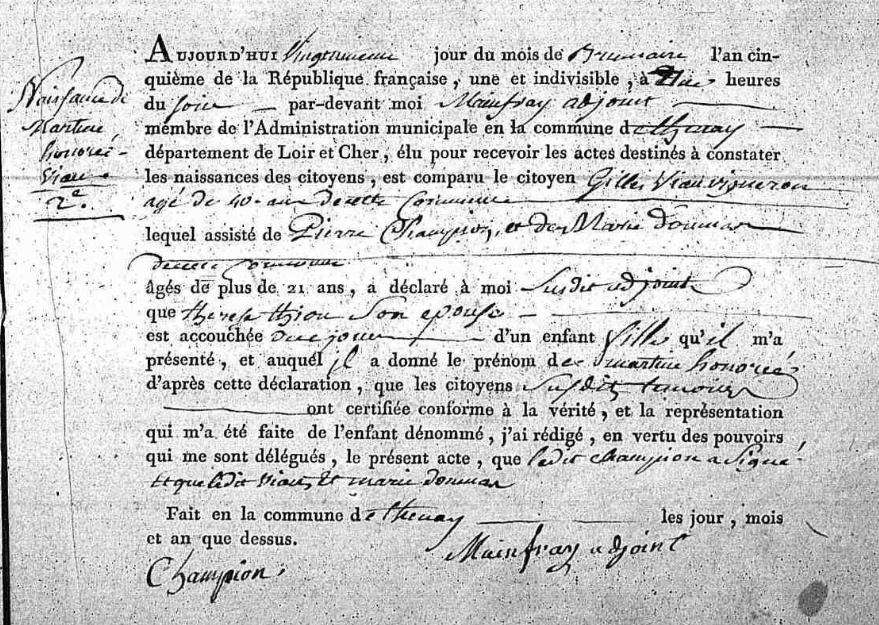 Naissance de
Martine
honorée
Viau
2e.
AUJOURD'HUI Vingtneuf jour du mois de Brumaire l'an cin-
quième de la République française, une et indivisible, à heures
du soir par-devant moi Mainfray adjoint
membre de l'Administration municipale en la commune de thenay
département de Loir et Cher, élu pour recevoir les actes destinés à constater
les naissances des citoyens, est comparu le citoyen Gilles Viau vigneron
agé de 40 ans de cette Commune
lequel assisté de Pierre Champion, et de Marie
de cette Commune
âgés de plus de 21 ans, a déclaré à moi Susdit adjoint
que therese thiou Son epouse
est accouchée de ce jour d'un enfant fille qu'il m'a
présenté, et auquel il a donné le prénom de martine honorée
d'après cette déclaration, que les citoyens Susdits temoins
ont certifiée conforme à la vérité, et la représentation
qui m'a été faite de l'enfant dénommé, j'ai rédigé, en vertu des pouvoirs
qui me sont délégués, le présent acte, que ledit Champion a Signé
Et que ledit Viau, Et marie
Fait en la commune de thenay les jour, mois
et an que dessus.
Mainfray adjoint
Champion